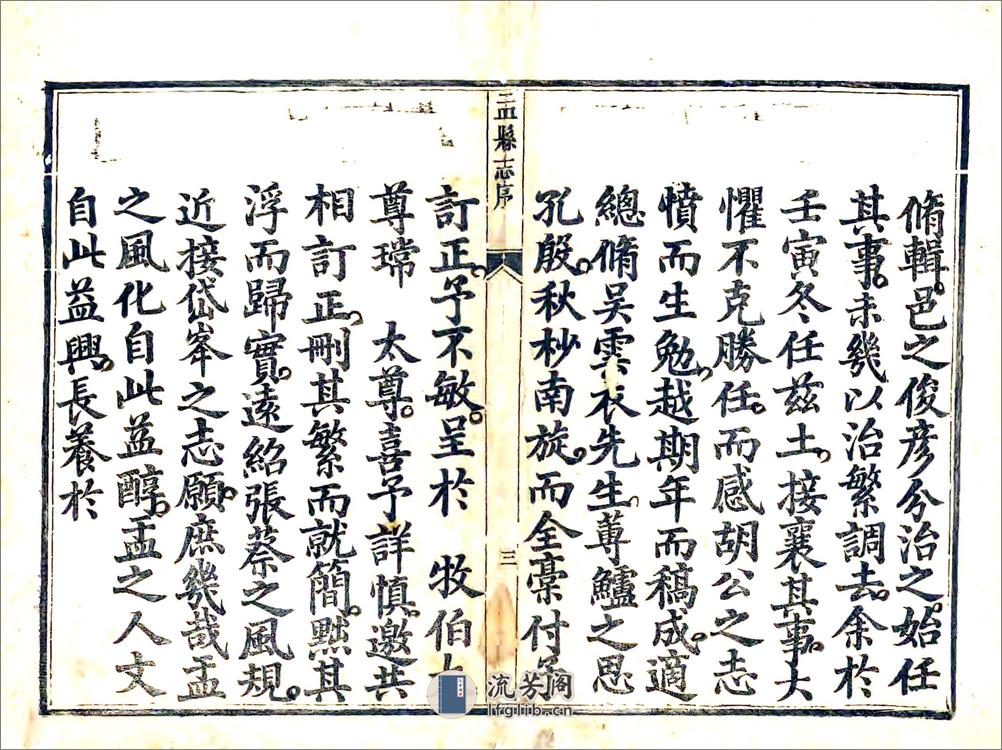 脩輯。邑之俊彥分治之。始任
其事。未幾以治繁調去。余於
壬寅冬任茲土。接襄其事。大
懼不克勝任。而感胡公之志
憤而生勉。越期年而稿成。適
總脩吳雲衣先生。蓴鱸之思
孔殷。秋杪南旋。而全稾付予
盂縣志序
三
訂正。予不敏。呈於 牧伯
尊 璫 太尊。喜予詳慎。邀共
相訂正。刪其繁而就簡。黜其
浮而歸實。遠紹張蔡之風規。
近接岱峯之志願。庶幾哉盂
之風化自此益醇。盂之人文
自此益興。長養於
流芳閣
lfglib.cn